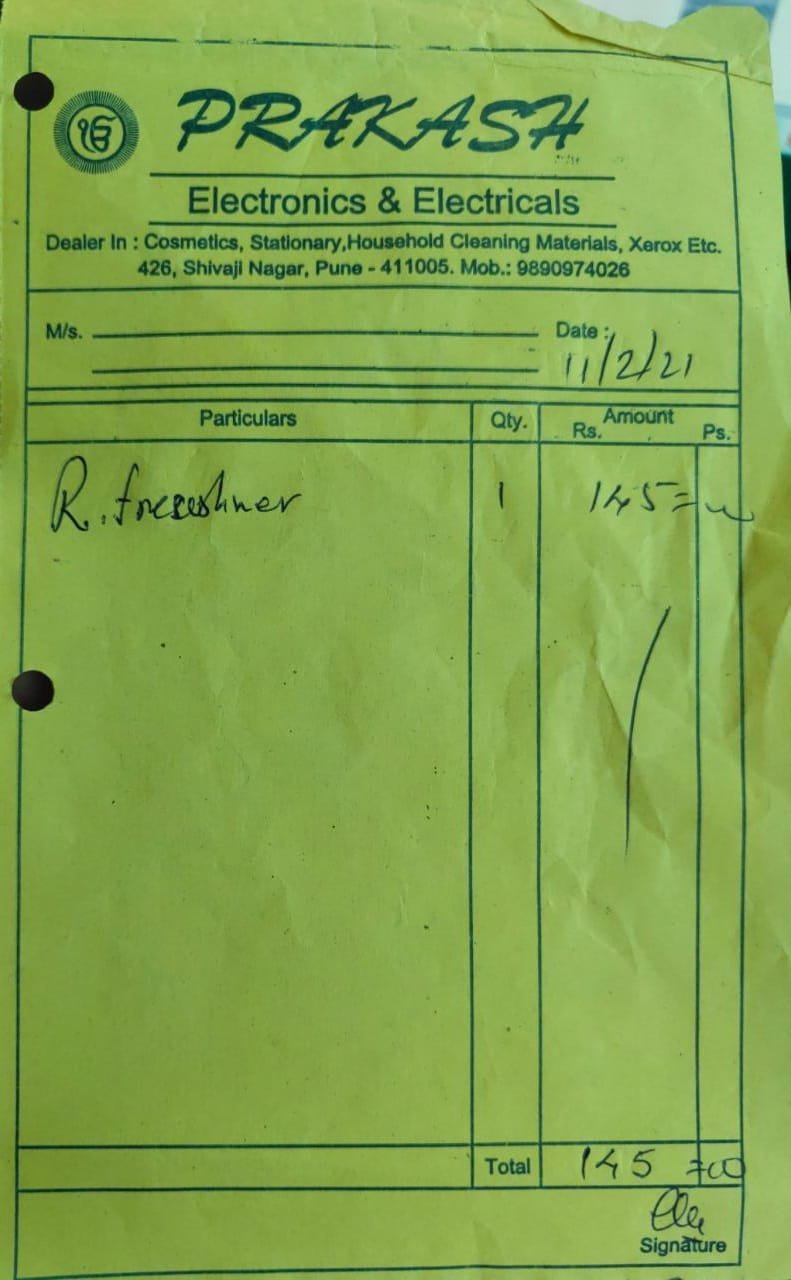 ੴ
PRAKASH
Electronics & Electricals
Dealer In : Cosmetics, Stationary,Household Cleaning Materials, Xerox Etc.
426, Shivaji Nagar, Pune - 411005. Mob.: 9890974026
M/s. Date :
11/2/21
Particulars Qty. Amount
Rs. Ps.
R. freseshner 1 145=
Total 145 =00
Signature